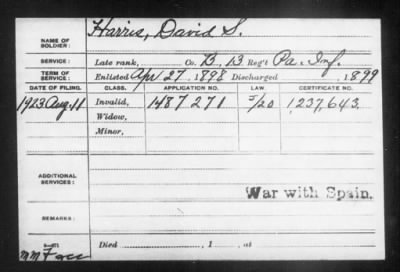 NAME OF SOLDIER: Harris, David S.
SERVICE: Late rank, Co. B, 13 Reg't Pa. Inf.
TERM OF SERVICE: Enlisted Apr 27, 1898 Discharged , 1899
DATE OF FILING. CLASS. APPLICATION NO. LAW. CERTIFICATE NO.
1923 Aug. 11 Invalid, 1487 271 5/20 1,237,643.
Widow,
Minor,
ADDITIONAL SERVICES:
War with Spain.
REMARKS:
Died , 1 , at